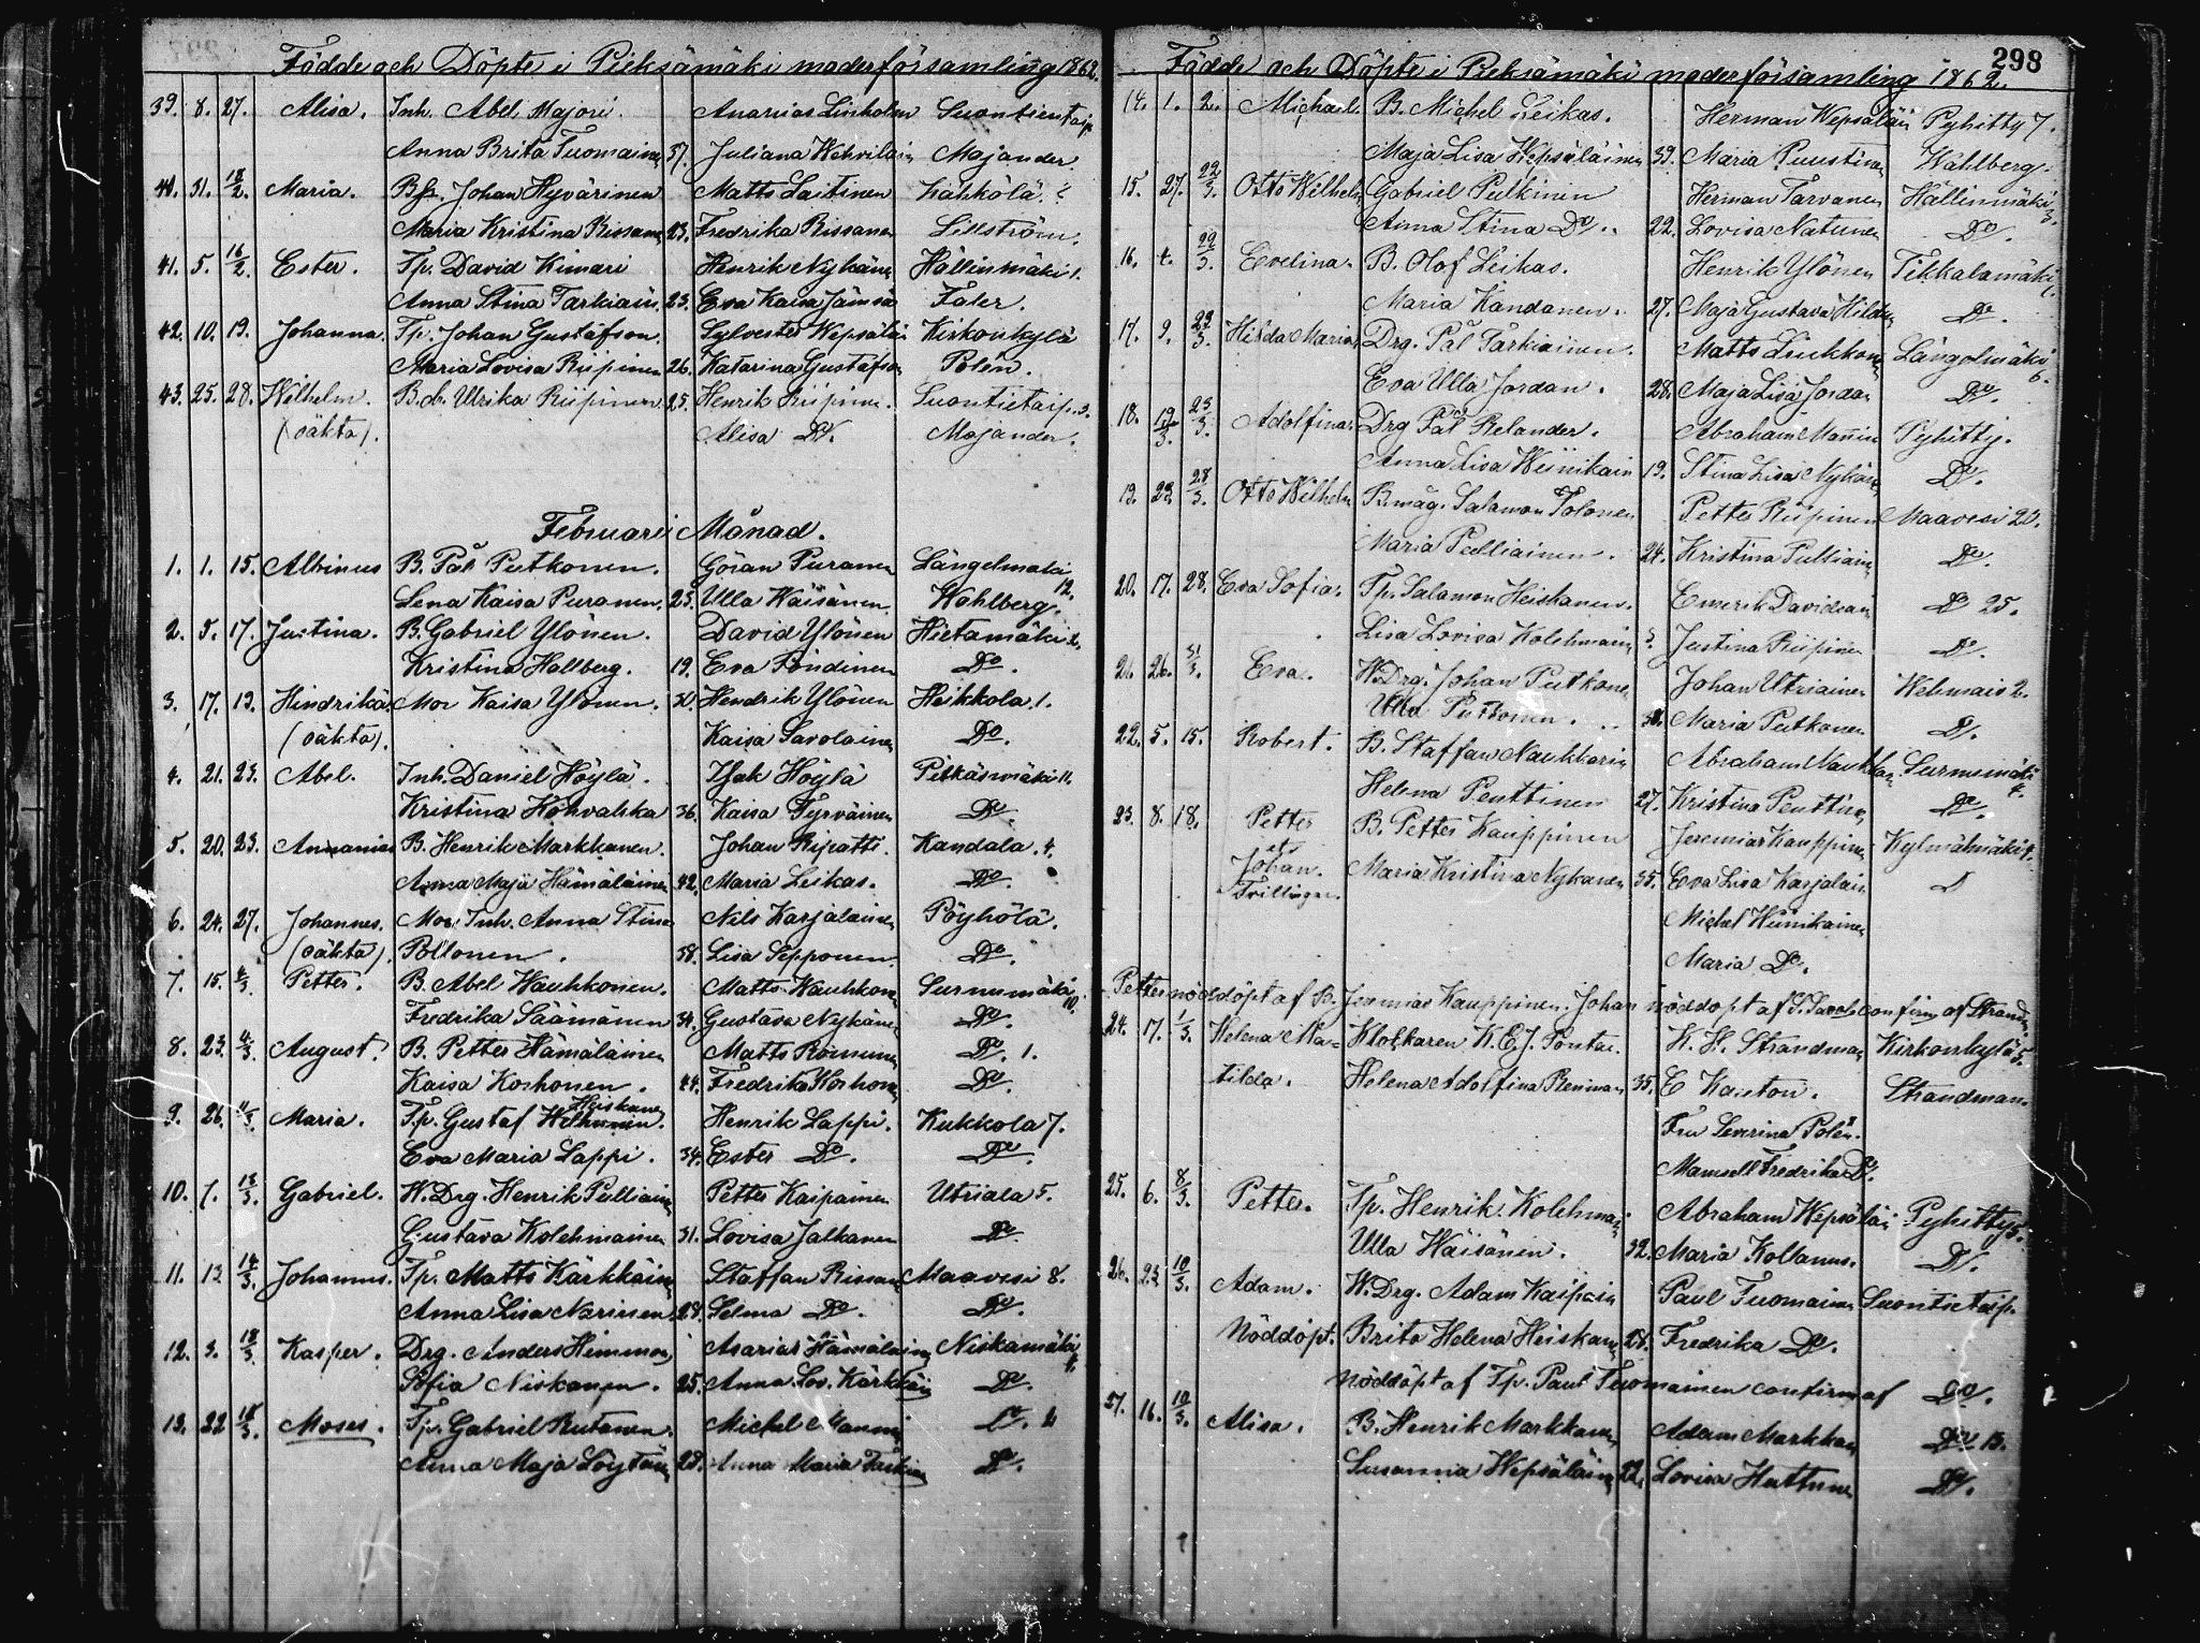 Födde och Döpte i Pieksämäki moderförsamling 1862.
39. 8. 27. Alisa. Inh. Abel Majori. Ananias Linholm Suontientaip
Anna Brita Tuomainen 37. Juliana Wehvilain Majander.
40. 31. 12/2. Maria. Johan Hyvärinen Matts Laitinen
Maria Kristina Rissanen 23. Fredrika Rissanen Lillström.
41. 5. 16/2. Ester. Tp. David Kimari Henrik Nykäne Hällinmäki 1.
Anna Stina Tarkiain 23. Eva Kaisa Jämsä Faler.
42. 10. 19. Johanna. Tp. Johan Gustafson. Sylvester Wepsäläi Kirkonkylä
Maria Lovisa Riipinen 26. Katarina Gustafson Polén.
43. 25. 28. Wilhelm. B.d. Ulrika Riipinen 25. Henrik Riipine. Suontietaip. 3.
(oäkta). Alisa Do. Majander.
Februari Månad.
1. 1. 15. Albinus B. Pål Putkonen. Göran Puranen Längelmäki
Lena Kaisa Puranen. 23. Ulla Wäisänen. Wahlberg. 12.
2. 5. 17. Justina. B. Gabriel Ylönen. David Ylönen Hietamäki 2.
Kristina Hallberg. 19. Eva Pöndinen Do.
3. 17. 19. Hindrika Mor Kaisa Ylönen. Hendrik Ylönen Heikkola. 1.
(oäkta). Kaisa Savolainen Do.
4. 21. 23. Abel. Inh. Daniel Höylä. Isak Höylä Pitkäsmäki 11.
Kristina Hohvakka 36. Kaisa Tyrväinen Do.
5. 20. 23. Annanias B. Henrik Markkanen. Johan Ripatti. Kandala. 4.
Anna Maja Hämäläinen 42. Maria Leikas. Do.
6. 24. 27. Johannes. Mor, Inh. Anna Stina Nils Karjalainen Pöyhölä.
(oäkta). Pollonen. 38. Lisa Sepponen. Do.
7. 15. 4/3. Petter. B. Abel Hauhkonen. Matts Hauhkone Surnumäki
Fredrika Säämänen 34. Gustava Nykänen Do. 10.
8. 23. 4/3. August. B. Petter Hämäläinen Matts Rönninen Do. 1.
Kaisa Korhonen. 44. Fredrika Korhonen Do.
Heiskanen
9. 26. 11/3. Maria. Tp. Gustaf Henrik Lappi. Kukkola 7.
Eva Maria Lappi. 34. Ester Do. Do.
10. 7. 13/3. Gabriel. W. Drg. Henrik Pulliain Petter Kaipainen Utriala 5.
Gustava Kolehmainen 31. Lovisa Jalkanen Do
11. 13 14/3. Johannes. Tp. Matts Kärkkäin Staffan Rissan Maavesi 8.
Anna Lisa Narinen 28. Selma Do. Do.
12. 3. 18/3. Kasper. Drg. Anders Himmon Asarias Hämäläinen Niskamäki
Sofia Niskanen. 25. Anna Lov. Kärkkäin Do. 4.
13. 22 18/3. Moses. Tp. Gabriel Rutanen. Michel Manni Do. 4
Anna Maja Löytäin 29. Anna Maria Tarkiain Do.
298
Födde och Döpte i Pieksämäki moderförsamling 1862.
14. 1. 2. Michael. B. Michel Leikas. Herman Wepsäläi Pyhitty 7.
Maja Lisa Wepsäläinen 39. Maria Puustinen Wahlberg.
15. 27. 22/3. Otto Wilhelm Gabriel Pulkinen Herman Tarvanen Hällinmäki
Anna Stina Do. 22. Lovisa Natunen Do. 3.
16. 4. 22/3. Evelina. B. Olof Leikas. Henrik Ylönen Tikkalamäki
Maria Kandanen. 27. Maja Gustava Hilden Do.
17. 9. 23/3. Hilda Maria. Drg. Pål Tarkiainen. Matts Liukkonen Längelmäki
Eva Ulla Jordan. 28. Maja Lisa Jordan Do. 6.
18. 19/3. 23/3. Adolfina. Drg Pål Relander. Abraham Mannin Pyhitty.
Anna Lisa Wiinikain 19. Stina Lisa Nykän Do.
19. 23 28/3. Otto Wilhelm B.måg. Salamon Tolonen Petter Riipinen Maavesi 23.
Maria Pulliainen. 24. Kristina Pulliain Do.
20. 17. 28. Eva Sofia. Tp. Salamon Heiskanen. Emerik Davidsain Do 25.
Lisa Lovisa Kolehmain Justina Riipinen Do.
21. 26. 31/3. Eva. W. Drg. Johan Putkonen Johan Utriainen Wehmais 2.
Ulla Putkonen. 38. Maria Putkonen D.
22. 5. 15. Robert. B. Staffan Naukkarin Abraham Naukkar Surnumäki
Helena Penttinen 27. Kristina Penttinen Do. 4.
23. 8. 18. Petter B. Petter Kauppinen Jeremias Kauppinen Kylmämäki 4.
och Johan. Maria Kristina Nykänen 35. Eva Lisa Karjalain D
Tvillingar.
Michel Wiinikainen
Maria Do.
Petter nöddöpt af B. Jeremias Kauppinen. Johan nöddöpt af confirm af Strandm.
24. 17. 1/3. Helena Ma= Klockaren K. E. J. Pontan. K. H. Strandman Kirkonkylä 5.
tilda. Helena Adolfina Renman 35. E Kanton. Strandman.
Fru Severina Polén.
Mamsell Fredrika Do.
25. 6. 8/3. Petter. Tp. Henrik Kolehmain Abraham Wepsäläi Pyhitty 5.
Ulla Häisänen. 32. Maria Kollanus. D.
26. 23 10/3. Adam. W. Drg. Adam Kaipain Paul Tuomainen Suontietaip.
Nöddöpt. Brita Helena Heiskanen 28. Fredrika Do.
Nöddöpt af Tp. Paul Tuomainen confirm af Do.
27. 16. 10/3. Alisa. B. Henrik Markkanen Adam Markkan Do 13.
Susanna Wepsäläinen 22. Lovisa Hattunen Do.